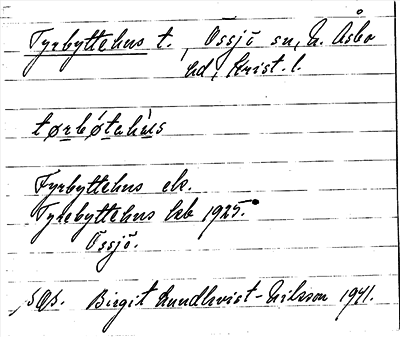 Tyrbyttehus t., Össjö sn, N. Åsbo
hd, Krist. l.
tørbǿtahùs
Fyrbyttehus ek.
Tyrebyttehus kb 1925.
Össjö.
Birgit Lundkvist-Nilsson 1941.